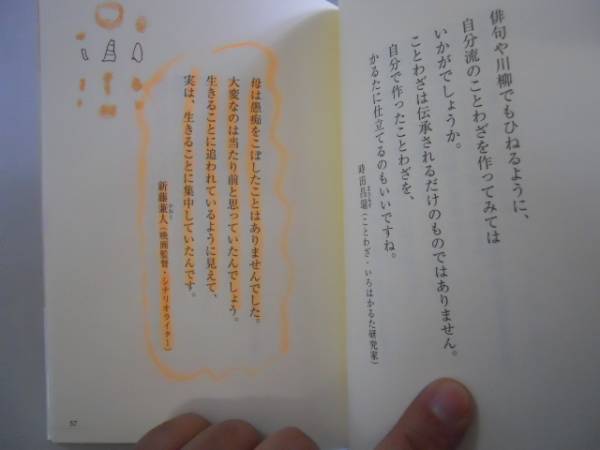 俳句や川柳でもひねるように、
自分流のことわざを作ってみては
いかがでしょうか。
ことわざは伝承されるだけのものではありません。
自分で作ったことわざを、
かるたに仕立てるのもいいですね。
時田昌瑞（ことわざ・いろはかるた研究家）
母は愚痴をこぼしたことはありませんでした。
大変なのは当たり前と思っていたんでしょう。
生きることに追われているように見えて、
実は、生きることに集中していたんです。
新藤兼人（映画監督・シナリオライター）
57